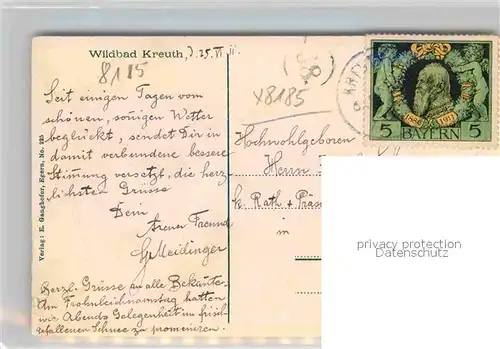 Wildbad Kreuth, d. 25. VI. 11.
8185
x8185
Seit einigen Tagen vom
schönen, sonnigen Wetter
beglückt, sendet Dir in
damit verbundene bessere
Stimmung versetzt, die herz-
lichsten Grüsse
Dein
Freund
G. Meidinger
Herzl. Grüsse an alle Bekannte.
Am Frohnleichnamstag hatten
wir Abends Gelegenheit im frisch
gefallenen Schnee zu promenieren.
Verlag: E. Ganghofer, Egern, No. 225
KREUTH
5 1886 1911 5
BAYERN
Hochwohlgeboren
Herrn
k. Rath + Präs
in
privacy protection
Datenschutz